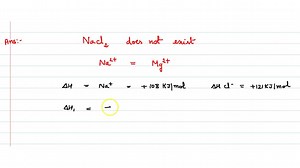 Ans:- NaCl2 does not exist
Na2+ = Mg2+
ΔH = Na+ = +108 KJ/mol ΔH Cl- = +121 KJ/mol
ΔH, =